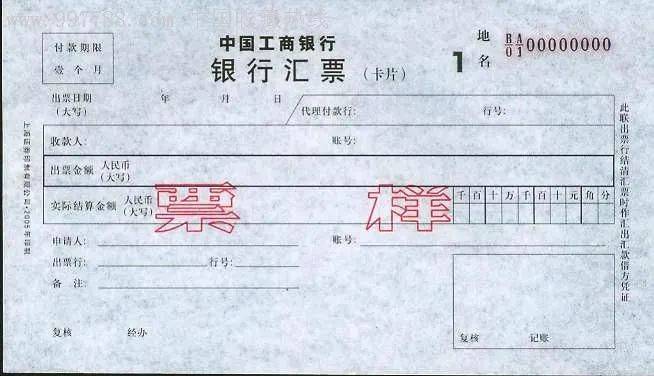 www.997788.com 中国收藏热线
付款期限
壹个月
中国工商银行
银行汇票 (卡片) 1
地名
BA
01 00000000
出票日期
(大写) 年 月 日
代理付款行: 行号:
收款人: 账号:
出票金额 人民币
(大写)
实际结算金额 人民币
(大写)
千百十万千百十元角分
票样
申请人: 账号:
出票行: 行号:
备注:
复核 经办
复核 记账
此联出票行结清汇票时作汇出汇款借方凭证